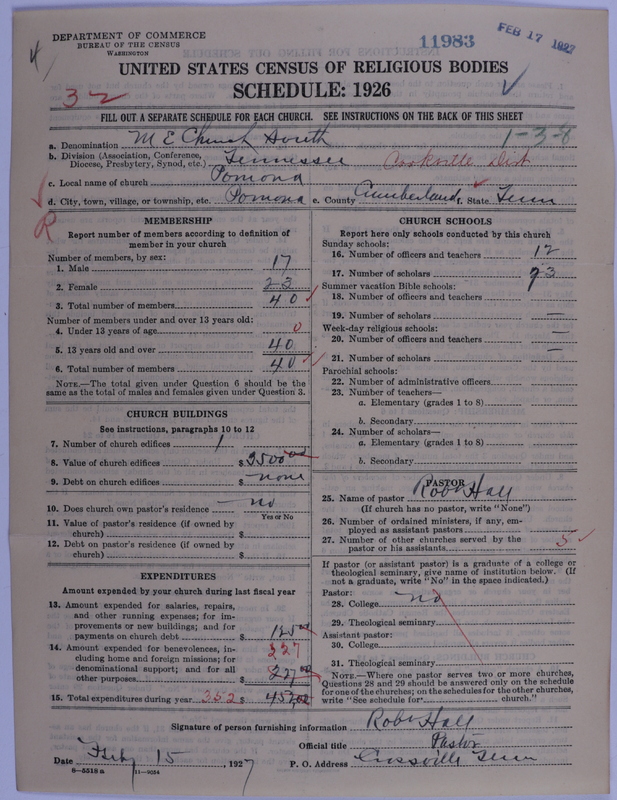 DEPARTMENT OF COMMERCE
BUREAU OF THE CENSUS
WASHINGTON
11983
FEB 17 1927
UNITED STATES CENSUS OF RELIGIOUS BODIES
SCHEDULE: 1926
32
FILL OUT A SEPARATE SCHEDULE FOR EACH CHURCH. SEE INSTRUCTIONS ON THE BACK OF THIS SHEET
1-3-8
a. Denomination M E Church South
b. Division (Association, Conference, Diocese, Presbytery, Synod, etc.) Tennessee Cookville Dist
c. Local name of church Pomona
d. City, town, village, or township, etc. Pomona e. County Cumberland f. State Tenn
R
MEMBERSHIP
Report number of members according to definition of
member in your church
Number of members, by sex:
1. Male 17
2. Female 23
3. Total number of members 40
Number of members under and over 13 years old:
4. Under 13 years of age 0
5. 13 years old and over 40
6. Total number of members 40
NOTE.—The total given under Question 6 should be
same as the total of males and females given under Question 3.
CHURCH BUILDINGS
See instructions, paragraphs 10 to 12
7. Number of church edifices 1
8. Value of church edifices $ 2500 00
9. Debt on church edifices $ none
10. Does church own pastor's residence no
Yes or No
11. Value of pastor's residence (if owned by
church) $
12. Debt on pastor's residence (if owned by
church) $
EXPENDITURES
Amount expended by your church during last fiscal year
13. Amount expended for salaries, repairs,
and other running expenses; for im-
provements or new buildings; and for
payments on church debt $ 125 00
14. Amount expended for benevolences, in- 227
cluding home and foreign missions; for
denominational support; and for all
other purposes $
15. Total expenditures during year 352 $
CHURCH SCHOOLS
Report here only schools conducted by this church
Sunday schools:
16. Number of officers and teachers 12
17. Number of scholars 73
Summer vacation Bible schools:
18. Number of officers and teachers
19. Number of scholars —
Week-day religious schools:
20. Number of officers and teachers —
21. Number of scholars —
Parochial schools:
22. Number of administrative officers
23. Number of teachers—
a. Elementary (grades 1 to 8)
b. Secondary
24. Number of scholars—
a. Elementary (grades 1 to 8)
b. Secondary
PASTOR
25. Name of pastor Robt Hall
(If church has no pastor, write "None")
26. Number of ordained ministers, if any, em-
ployed as assistant pastors
27. Number of other churches served by the
pastor or his assistants 5
If pastor (or assistant pastor) is a graduate of a college or
theological seminary, give name of institution below. (If
not a graduate, write "No" in the space indicated.)
Pastor:
28. College no
29. Theological seminary
Assistant pastor:
30. College
31. Theological seminary
NOTE.—Where one pastor serves two or more churches,
Questions 28 and 29 should be answered only on the schedule
for one of the churches; on the schedules for the other churches,
write "See schedule for church."
Signature of person furnishing information Robt Hall
Official title Pastor
Date Feby 15, 1927 P. O. Address Crossville Tenn
8—5518 a 11—9024